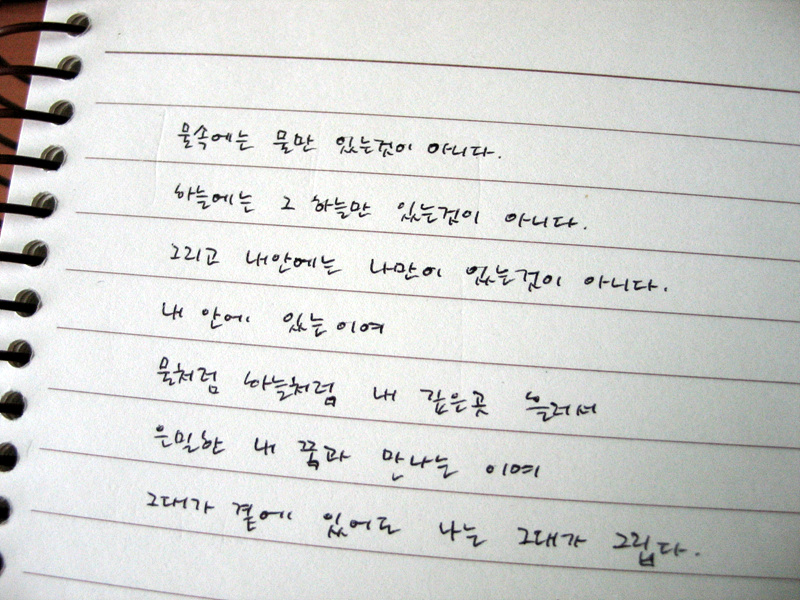 물속에는 물만 있는것이 아니다.
하늘에는 그 하늘만 있는것이 아니다.
그리고 내안에는 나만이 있는것이 아니다.
내 안에 있는 이여
물처럼 하늘처럼 내 깊은곳 흘러서
은밀한 내 꿈과 만나는 이여
그대가 곁에 있어도 나는 그대가 그립다.